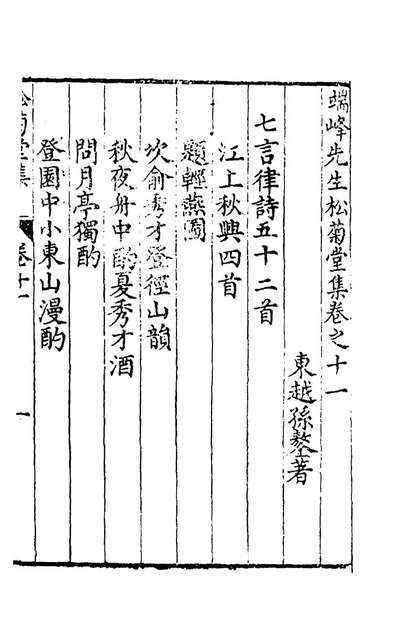 端峰先生松菊堂集卷之十一
東越孫鏊著
七言律詩五十二首
江上秋興四首
題輕燕圖
次俞秀才登徑山韻
秋夜舟中酌夏秀才酒
問月亭獨酌
登園中小東山漫酌
松菊堂集 卷十一 一